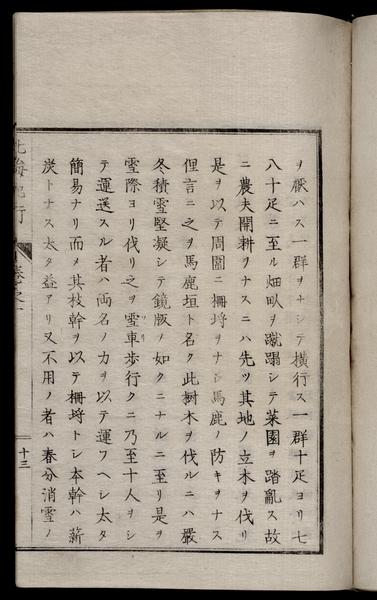 ヲ厭ハス一群ヲナシテ横行ス一群十疋ヨリ七
八十疋ニ至ル畑畞ヲ蹴蹋シテ菜園ヲ踏亂ス故
ニ農夫開耕ヲナスニハ先ツ其地ノ立木ヲ伐リ
是ヲ以テ周圍ニ柵埒ヲナシ馬鹿ノ防キヲナス
俚言ニ之ヲ馬鹿垣ト名ク此樹木ヲ伐ルニハ嚴
冬積雪堅凝シテ鏡版ノ如クニナルニ至リ是ヲ
雪際ヨリ伐リ之ヲ雪車歩行クニ乃至十人ヲシ
テ運送スル者ハ両名ノ力ヲ以テ運フヘシ太タ
簡易ナリ而メ其枝幹ヲ以テ柵埒トシ本幹ハ薪
炭トナス太タ益アリ又不用ノ者ハ春分消雪ノ
北海紀行
十三